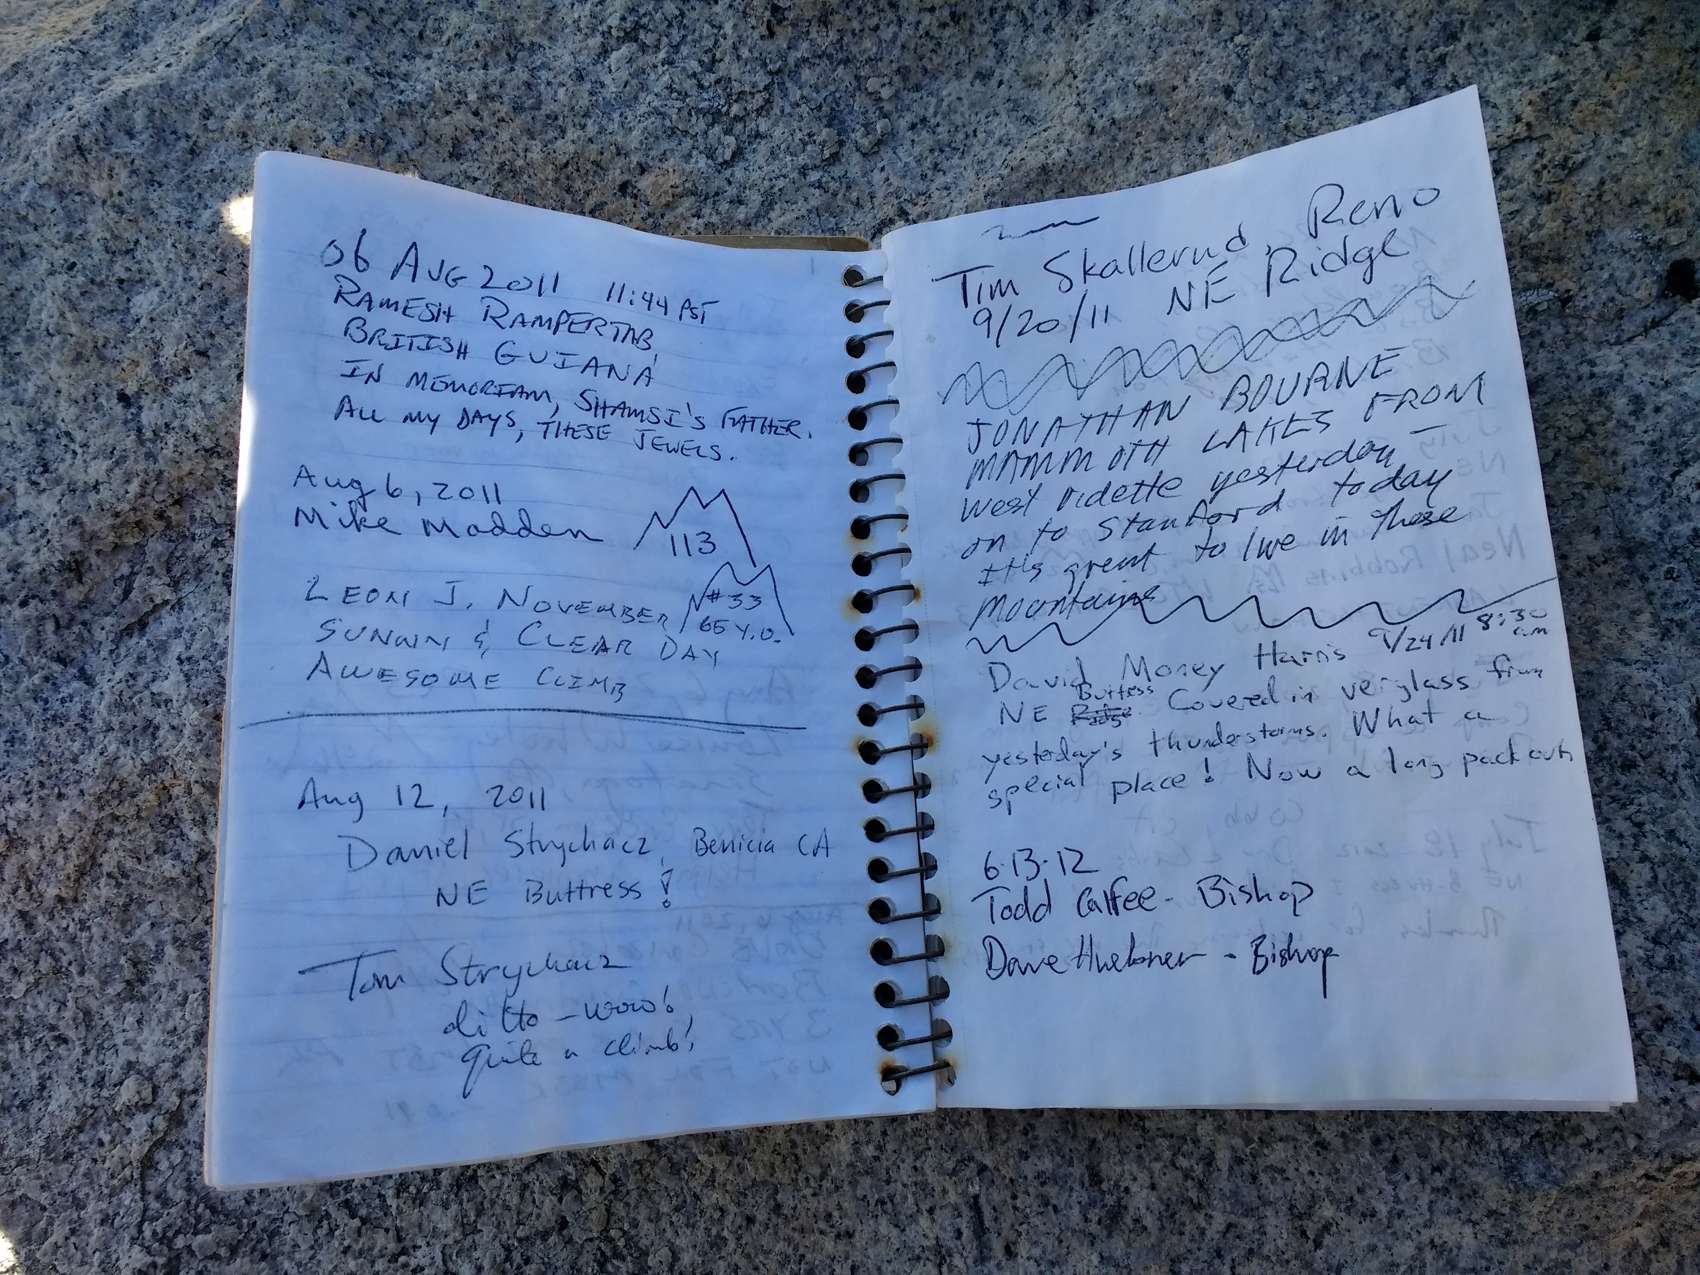 06 AUG 2011 11:44 PST
RAMESH RAMPERTAB
BRITISH GUIANA
IN MEMORIAM, SHAMSI'S FATHER.
ALL MY DAYS, THESE JEWELS.
Aug 6, 2011
Mike Madden
113
LEON J. NOVEMBER
#33
65 Y.O.
SUNNN & CLEAR DAY
AWESOME CLIMB
Aug 12, 2011
Daniel Strychacz, Benicia CA
NE Buttress!
Tom Strychacz
ditto - wow!
quite a climb!
Tim Skallerud, Reno
9/20/11 NE Ridge
JONATHAN BOURNE
MAMMOTH LAKES FROM
west vidette yesterday -
on to Stanford today
It's great to live in these
Mountains
David Money Harris 9/24/11 8:30 am
NE Buttress. Covered in verglass from
yesterday's thunderstorms. What a
special place! Now a long pack out
6·13·12
Todd Calfee - Bishop
Dave Huebner - Bishop